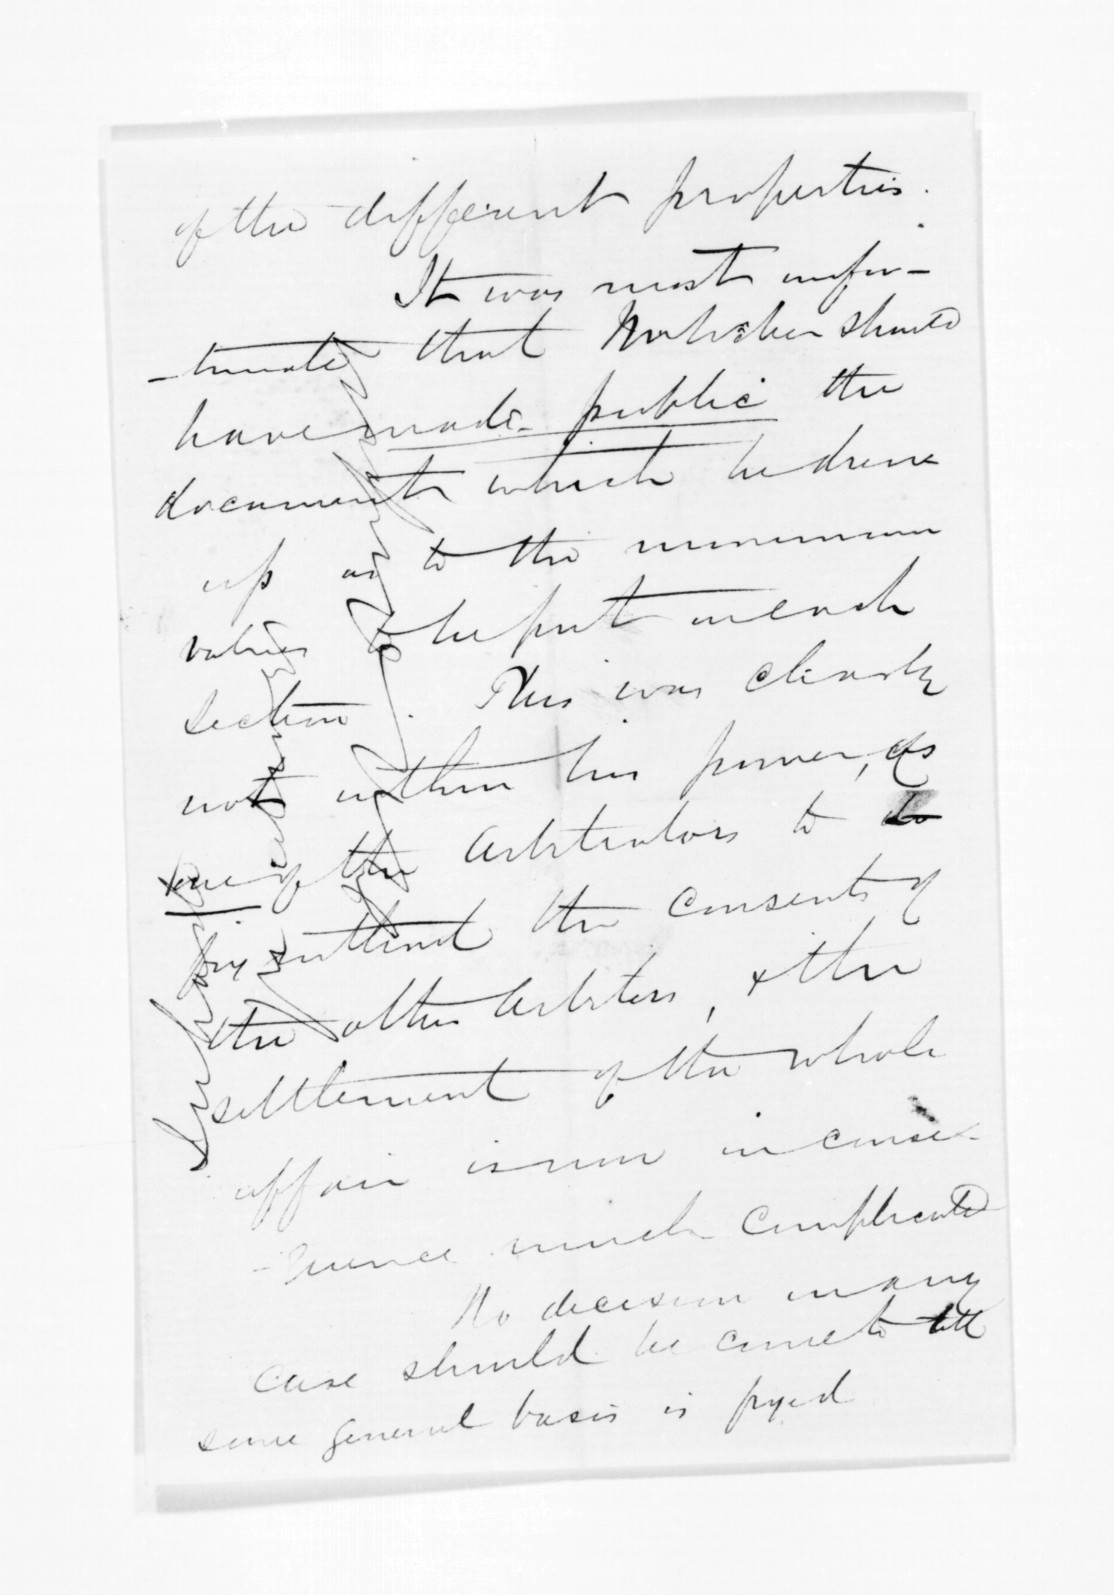 of the different properties.
It was most unfor-
-tunate that should
have made public the
documents which he drew
up as to the minimum
values to be put on each
section. This was clearly
not within his power, as
one of the Arbitrators to do
without the consents of
the other Arbiters, & the
settlement of the whole
affair is now in conse-
-quence much complicated
No decision in any
case should be come to till
some general basis is fixed